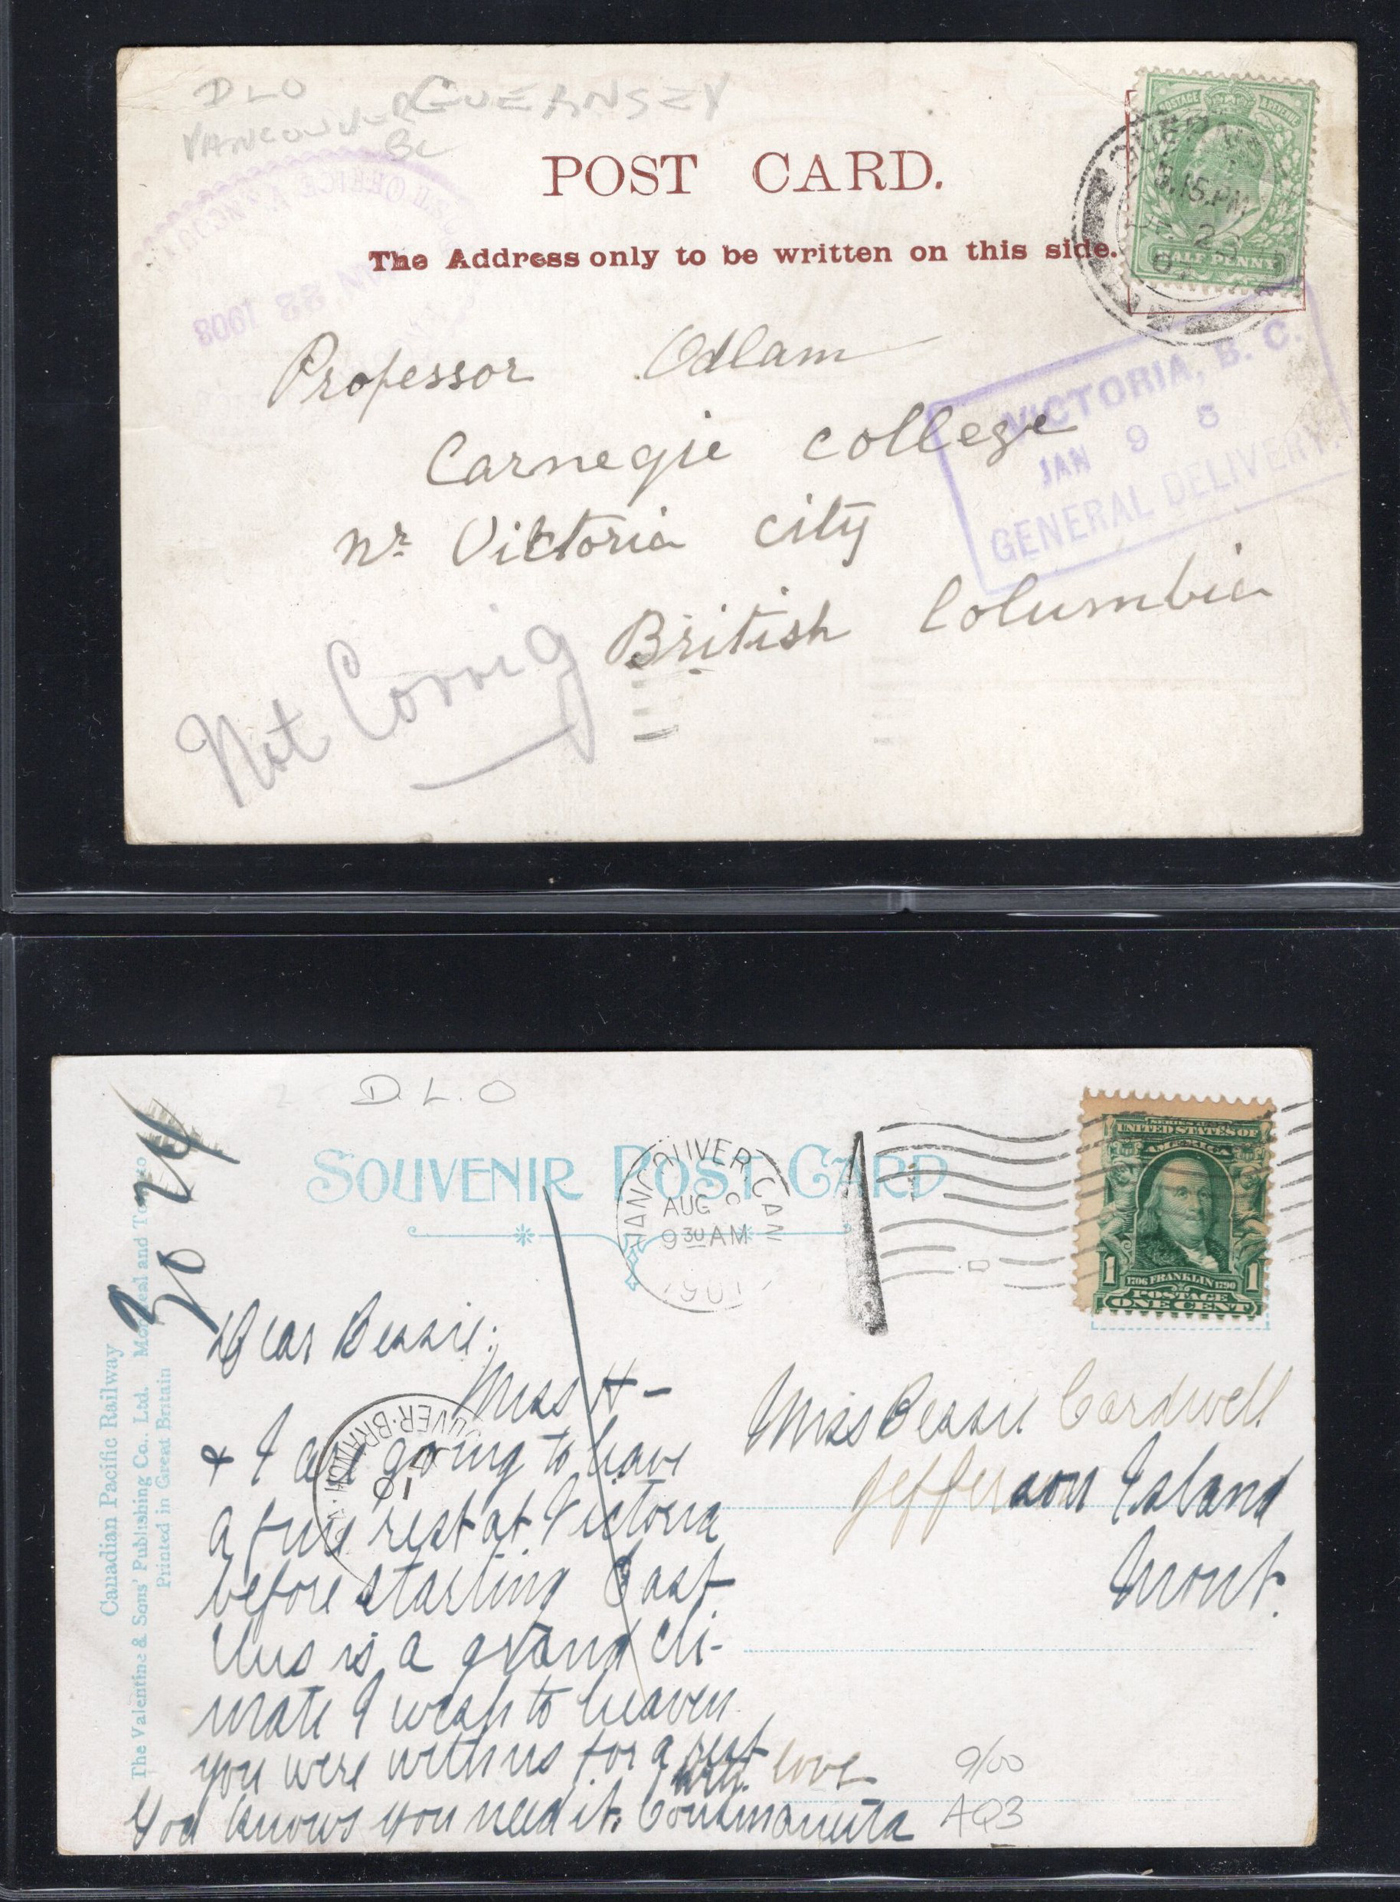 DLO GUERNSEY
VANCOUVER
BC
POST CARD.
The Address only to be written on this side.
POSTAGE & REVENUE
3.15.PM
HALF PENNY
POST OFFICE
JAN 23 1908
VICTORIA, B. C.
JAN 9 5
GENERAL DELIVERY.
Professor Odlam
Carnegie college
nr Victoria city
British Columbia
Not Corrig
D.L.O
SOUVENIR POST CARD
VANCOUVER CAN
AUG
9 30 AM
190
SERIES
UNITED STATES OF
AMERICA
1 1706 FRANKLIN 1790 1
POSTAGE
ONE CENT
Canadian Pacific Railway
The Valentine & Sons' Publishing Co., Ltd. Montreal and Toronto
Printed in Great Britain
Dear Bessie:
Miss H—
& I are going to have
a fine rest at Victoria
before starting East
This is a grand cli-
mate I wish to heaven
you were with us for a rest
God knows you need it. with love
UVER·BRANCH
10
Miss Bessie Cardwell
Jefferson Island
Mont.
9/00
AQ3